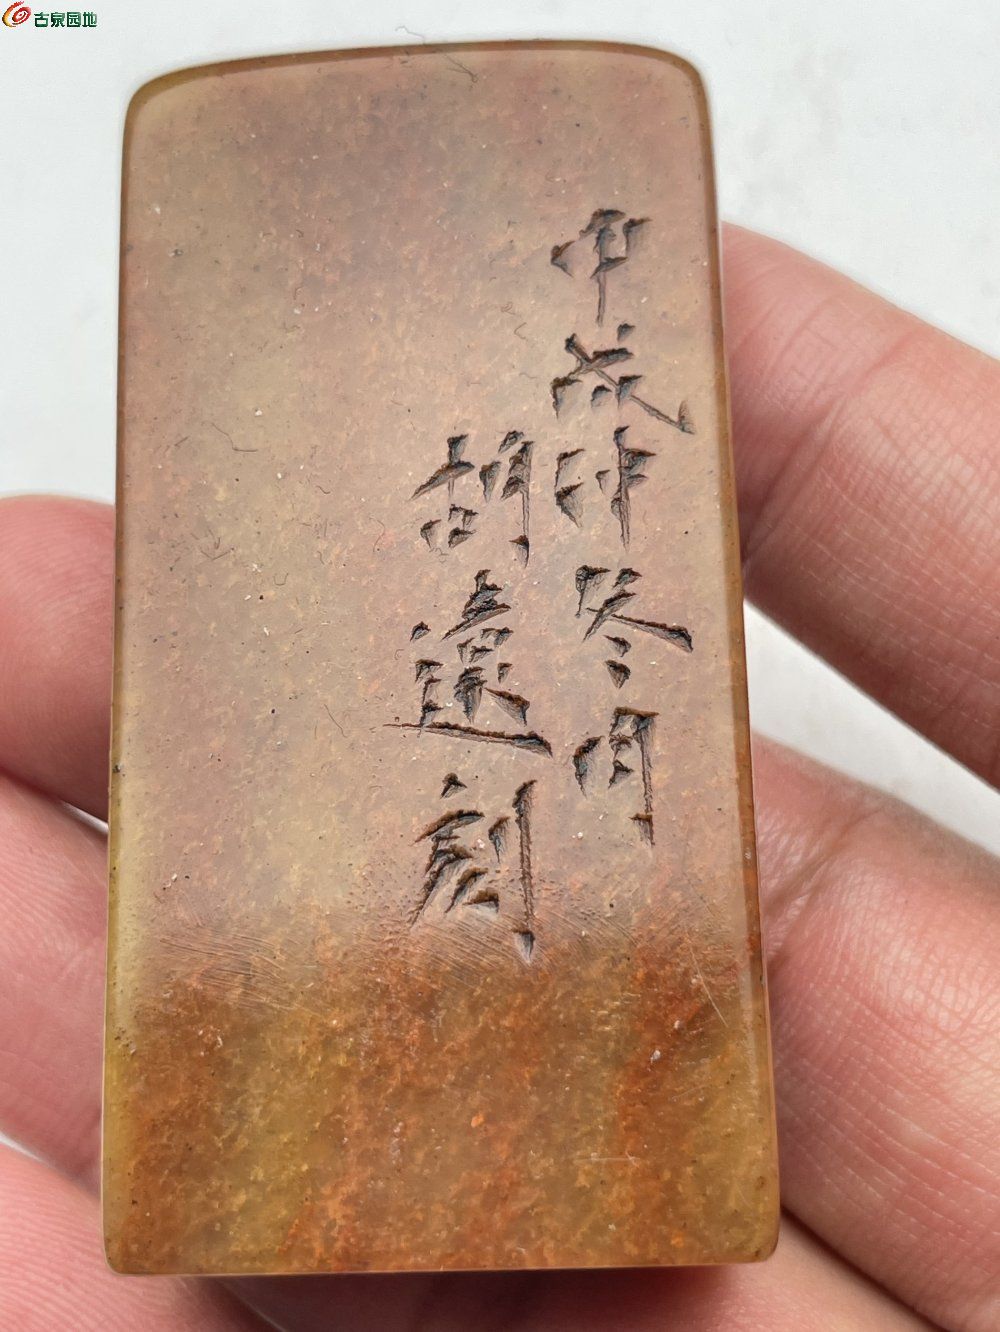 古泉园地
甲戌仲冬月
胡遠刻